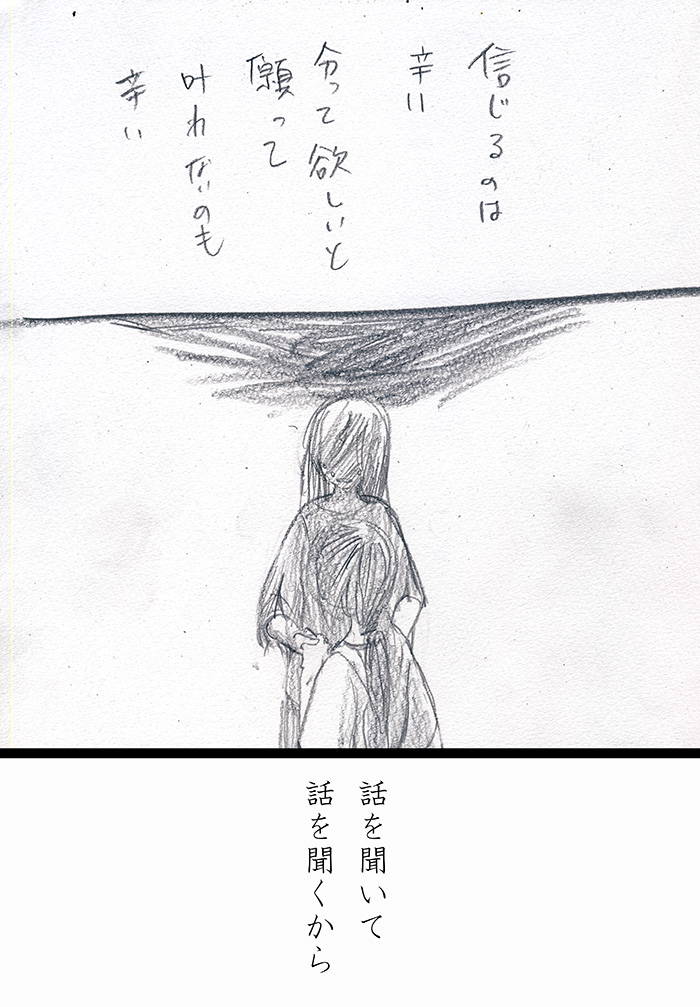 信じるのは
辛い
分って欲しいと
願って
叶れないのも
辛い
話を聞いて
話を聞くから